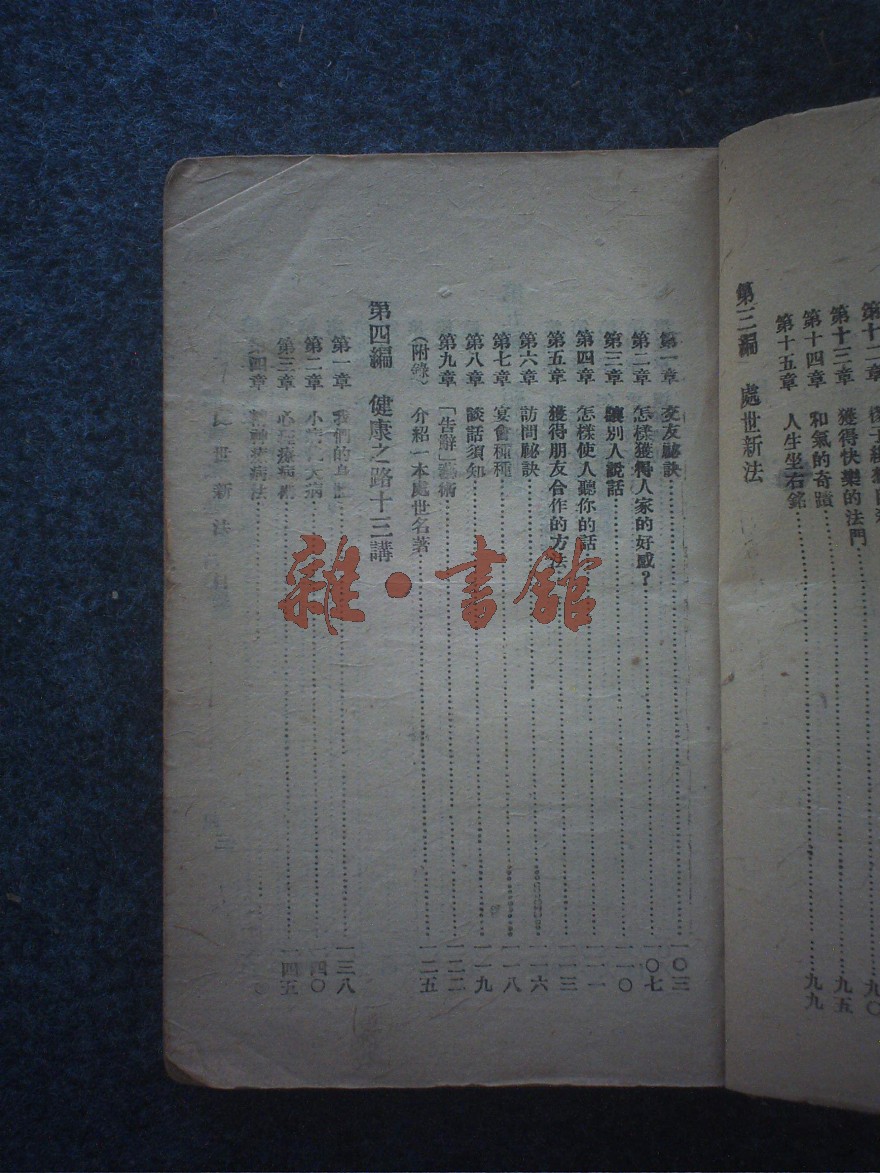 獲得快樂的法門 九〇
第十三章
第十四章 和氣的奇蹟 九五
第十五章 人生坐右銘 九九
第三編 處世新法
第一章 交友秘訣 一〇三
第二章 怎樣獲得人家的好感？ 一〇七
第三章 讓別人說話 一一〇
第四章 怎樣使人聽你的話 一一一
第五章 獲得朋友合作的方法 一一三
第六章 訪問秘訣 一一六
第七章 宴會種種 一一八
第八章 談話須知 一一九
第九章 「告辭」藝術 一二二
(附錄) 介紹一本處世名著 一二五
第四編 健康之路十三講
第一章 我們的身體 一三八
第二章 一四〇
第三章 心理療病術 一四五
四章 精神療病法
世新法
雜·書館